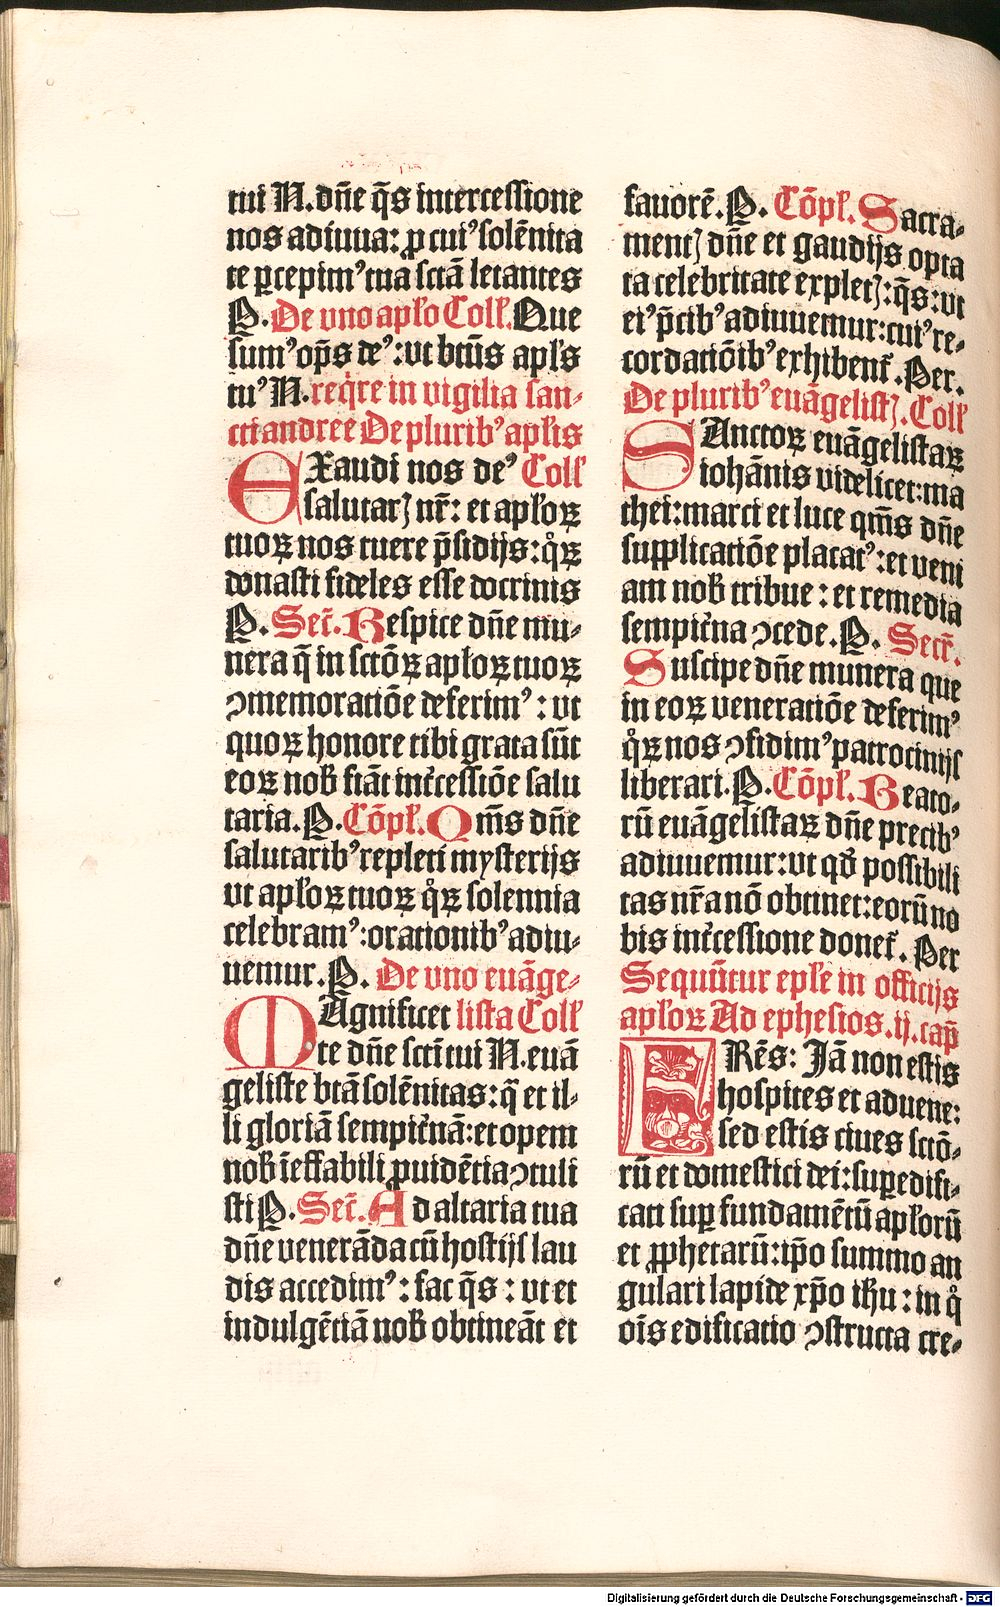 tui N. dñe q̄s intercessione
nos adiuua: ꝓ cuiꝰ solēnita
te ꝑcepimꝰ tua sctā letantes
P. De vno apl̓o Coll̓. Que
sumꝰ op̄s deꝰ: vt btūs apl̓s
tuꝰ N. req̇re in vigilia san⸗
cti andree De pluribꝰ apl̓is
EXaudi nos deꝰ Coll̓
salutarꝭ nr̄: et apl̓oꝝ
tuoꝝ nos tuere p̄sidijs: qͦꝝ
donasti fideles esse doctrinis
P. Secͬ. Respice dñe mu⸗
nera q̄ in sctōꝝ apl̓oꝝ tuoꝝ
ꝯmemoratiōe deferimꝰ: vt
quoꝝ honore tibi grata sūt
eoꝝ nob̓ fiāt intͨessiōe salu
taria. P. Cōpl̓. Qm̄s dñe
salutaribꝰ repleti mysterijs
vt apl̓oꝝ tuoꝝ qͦꝝ solennia
celebramꝰ: orationibꝰ adiu⸗
uemur. P. De vno euāge⸗
MAgnificet lista Coll̓
te dñe scti tui N. euā
geliste btā solēnitas: q̄ et il⸗
li gloriā sempit̓nā: et opem
nob̓ ieffabili ꝓuidētia ꝯtuli
sti P. Secͬ. Ad altaria tua
dñe venerāda cū hostijs lau
dis accedimꝰ: fac q̄s: vt et
indulgētiā nob̓ obtineāt et
fauorē. P. Cōpl̓. Sacra⸗
mentꝭ dñe et gaudijs opta
ta celebritate expletꝭ: q̄s: vt
eiꝰ p̄cibꝰ adiuuemur: cuiꝰ re⸗
cordatiōibꝰ exhibent̓. Per.
De pluribꝰ euāgelistꝭ. Coll̓
SAnctoꝝ euāgelistaꝝ
iohānis videlicet: ma
thei: marci et luce qm̄s dñe
supplicatiōe placatꝰ: et veni
am nob̓ tribue: et remedia
sempit̓na ꝯcede. P. Secr̄.
Suscipe dñe munera que
in eoꝝ veneratiōe deferimꝰ
qͦꝝ nos ꝯfidimꝰ patrocinijs
liberari. P. Cōpl̓. Beato⸗
rū euāgelistaꝝ dñe precibꝰ
adiuuemur: vt qd̓ possibili
tas nr̄a nō obtinet: eorū no
bis int̓cessione donet̓. Per
Sequūtur epl̓e in officijs
apl̓oꝝ Ad ephesios. ij. cap̄
FRēs: Jā non estis
hospites et aduene:
sed estis ciues sctō⸗
rū et domestici dei: suꝑedifi⸗
cati suꝑ fundamētū apl̓orū
et ꝓphetarū: ip̄o summo an
gulari lapide xp̄o ihu: in qͦ
oīs edificatio ꝯstructa cre⸗
Digitalisierung gefördert durch die Deutsche Forschungsgemeinschaft - DFG